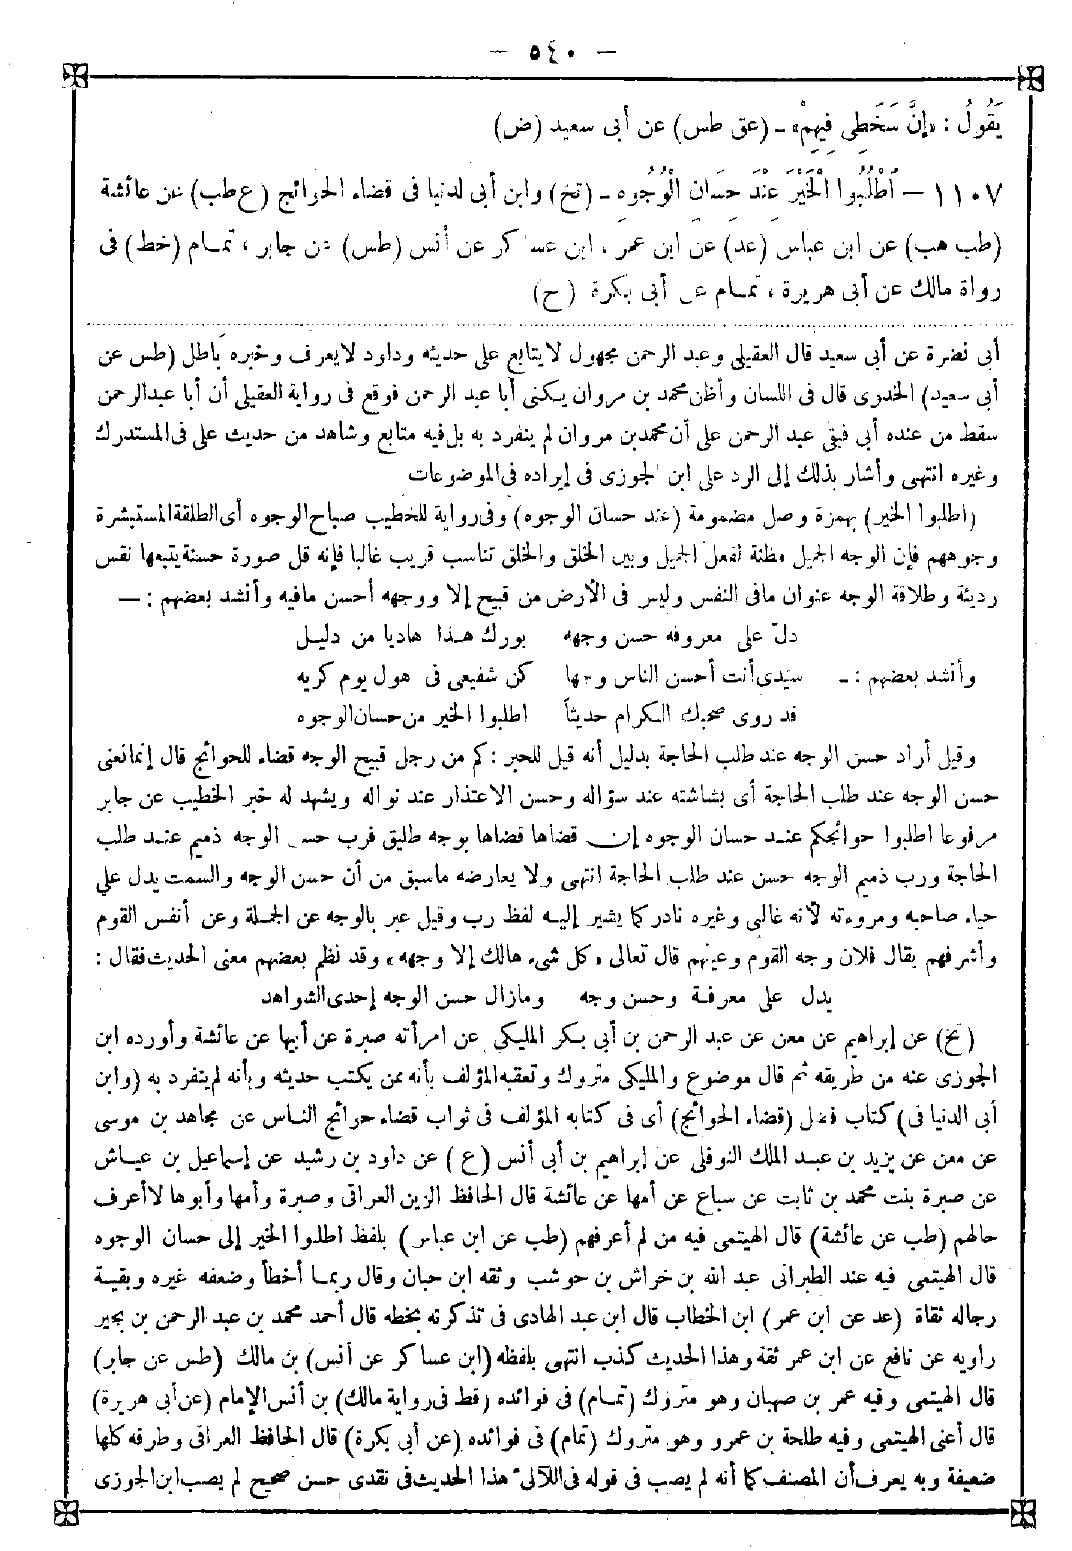 — ٥٤٠ —
يَقُولُ : «إنَّ سَخَطِى فِيهِمْ» ـ (عق طس) عن أبى سعيد (ض)
١١٠٧ — اُطْلُبُوا الْخَيْرَ عِنْدَ حِسَانِ الْوُجُوهِ ـ (تخ) وابن أبى لدنيا فى قضاء الحوائج (ع طب) عن عائشة
(طب هب) عن ابن عباس (عد) عن ابن عمر ، ابن عساكر عن أنس (طس) عن جابر ، تمام (خط) فى
رواة مالك عن أبى هريرة ، تمام عن أبى بكرة (ح)
أبى نضرة عن أبى سعيد قال العقيلى وعبد الرحمن مجهول لا يتابع على حديثه وداود لا يعرف وخبره باطل (طس عن
أبى سعيد) الخدرى قال فى اللسان وأظن محمد بن مروان يكنى أبا عبد الرحمن فوقع فى رواية العقيلى أن أبا عبدالرحمن
سقط من عنده أبى فبقى عبد الرحمن على أن محمد بن مروان لم ينفرد به بل فيه متابع وشاهد من حديث على فى المستدرك
وغيره انتهى وأشار بذلك إلى الرد على ابن الجوزى فى إيراده فى الموضوعات
(اطلبوا الخير) بهمزة وصل مضمومة (عند حسان الوجوه) وفى رواية للخطيب صباح الوجوه أى الطلقة المستبشرة
وجوههم فإن الوجه الجميل مظنة لفعل الجميل وبين الخلق والخلق تناسب قريب غالبا فإنه قل صورة حسنة يتبعها نفس
رديئة وطلاقة الوجه عنوان مافى النفس وليس فى الأرض من قبيح إلا ووجهه أحسن مافيه وأنشد بعضهم : —
دلّ على معروفه حسن وجهه بورك هذا هاديا من دليل
وأنشد بعضهم : ـ سيّدى أنت أحسن الناس وجها كن شفيعى فى هول يوم كريه
قد روى صحبك الكرام حديثاً اطلبوا الخير من حسان الوجوه
وقيل أراد حسن الوجه عند طلب الحاجة بدليل أنه قيل للحبر : كم من رجل قبيح الوجه قضاء للحوائج قال إنما نعنى
حسن الوجه عند طلب الحاجة أى بشاشته عند سؤاله وحسن الاعتذار عند نواله ويشهد له خبر الخطيب عن جابر
مرفوعا اطلبوا حوائجكم عند حسان الوجوه إن قضاها قضاها بوجه طليق فرب حسن الوجه ذميم عند طلب
الحاجة ورب ذميم الوجه حسن عند طلب الحاجة انتهى ولا يعارضه ماسبق من أن حسن الوجه والسمت يدل على
حياء صاحبه ومروءته لأنه غالبى وغيره نادر كما يشير إليه لفظ رب وقيل عبر بالوجه عن الجملة وعن أنفس القوم
وأشرفهم يقال فلان وجه القوم وعينهم قال تعالى «كل شىء هالك إلا وجهه» وقد نظم بعضهم معنى الحديث فقال :
يدل على معرفة وحسن وجه ومازال حسن الوجه إحدى الشواهد
(تخ) عن إبراهيم عن معن عن عبد الرحمن بن أبى بكر المليكى عن امرأته صبرة عن أبيها عن عائشة وأورده ابن
الجوزى عنه من طريقه ثم قال موضوع والمليكى متروك وتعقبه المؤلف بأنه ممن يكتب حديثه وبأنه لم ينفرد به (وابن
أبى الدنيا فى) كتاب فضل (قضاء الحوائج) أى فى كتابه المؤلف فى ثواب قضاء حوائج الناس عن مجاهد بن موسى
عن معن عن يزيد بن عبد الملك النوفلى عن إبراهيم بن أبى أنس (ع) عن داود بن رشيد عن إسماعيل بن عياش
عن صبرة بنت محمد بن ثابت عن سباع عن أمها عن عائشة قال الحافظ الزين العراقى وصبرة وأمها وأبوها لا أعرف
حالهم (طب عن عائشة) قال الهيتمى فيه من لم أعرفهم (طب عن ابن عباس) بلفظ اطلبوا الخير إلى حسان الوجوه
قال الهيتمى فيه عند الطبرانى عبد الله بن خراش بن حوشب وثقه ابن حبان وقال ربما أخطأ وضعفه غيره وبقية
رجاله ثقاة (عد عن ابن عمر) ابن الخطاب قال ابن عبد الهادى فى تذكرته بخطه قال أحمد محمد بن عبد الرحمن بن بجير
راويه عن نافع عن ابن عمر ثقة وهذا الحديث كذب انتهى بلفظه (ابن عساكر عن أنس) بن مالك (طس عن جابر)
قال الهيتمى وفيه عمر بن صهبان وهو متروك (تمام) فى فوائده (قط فى رواية مالك) بن أنس الإمام (عن أبى هريرة)
قال أعنى الهيتمى وفيه طلحة بن عمرو وهو متروك (تمام) فى فوائده (عن أبى بكرة) قال الحافظ العراقى وطرقه كلها
ضعيفة وبه يعرف أن المصنف كما أنه لم يصب فى قوله فى اللآلى هذا الحديث فى نقدى حسن صحيح لم يصب ابن الجوزى